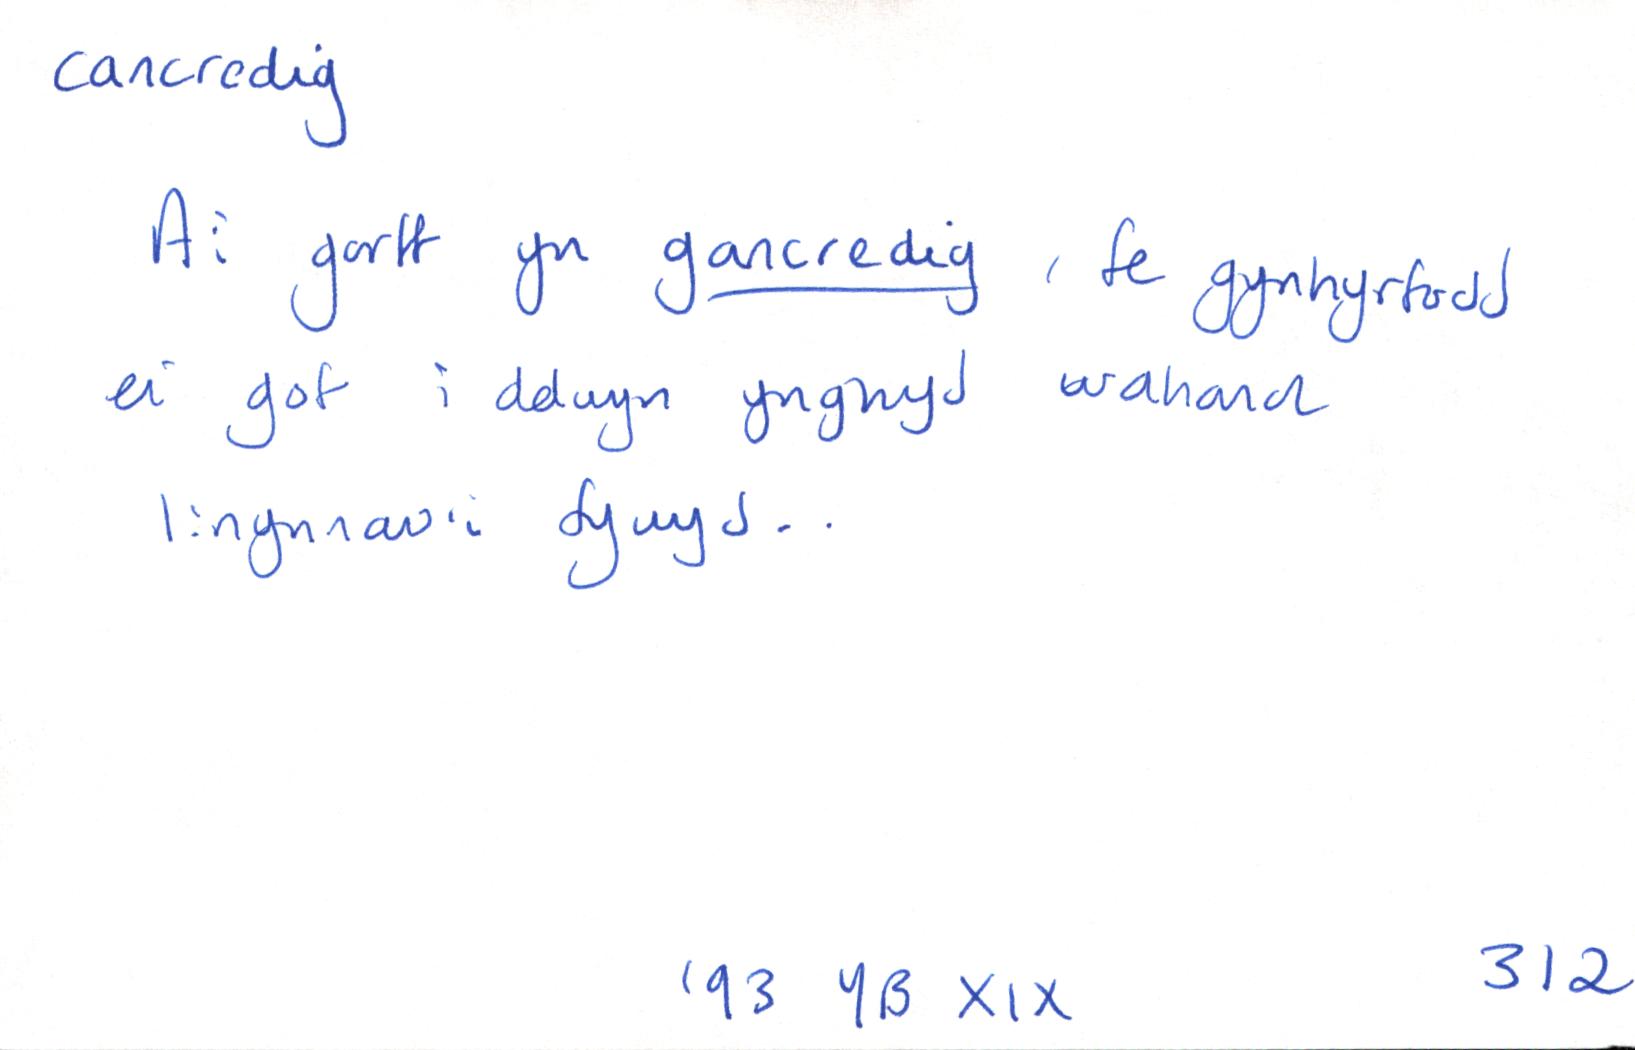 cancredig
A'i gorff yn gancredig, fe gynhyrfodd
ei gof i ddwyn ynghyd wahanol
linynnau'i fywyd...
'93 YB XIX 312